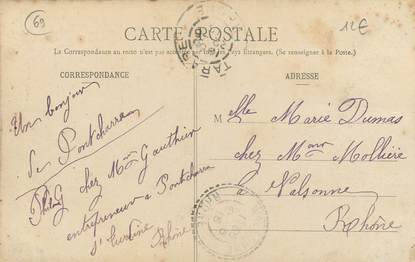 69
12€
CARTE POSTALE
La Correspondance au recto n'est pas acceptée par tous les pays Étrangers. (Se renseigner à la Poste.)
CORRESPONDANCE
ADRESSE
Un bonjour
de Pontcharra
chez Mme Gauthier
entrepreneur à Pontcharra
Rhône
Melle Marie Dumas
chez Mme Mollière
à Valsonne
Rhône